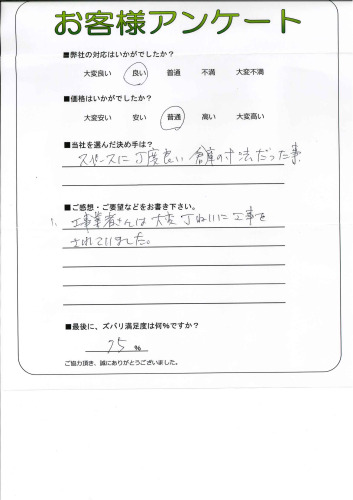 お客様アンケート
■弊社の対応はいかがでしたか?
大変良い 良い 普通 不満 大変不満
■価格はいかがでしたか?
大変安い 安い 普通 高い 大変高い
■当社を選んだ決め手は?
スペースに丁度良い倉庫の寸法だった事
■ご感想・ご要望などをお書き下さい。
工事業者さんは大変丁ねいに工事を
されていました。
■最後に、ズバリ満足度は何%ですか?
75 %
ご協力頂き、誠にありがとうございました。